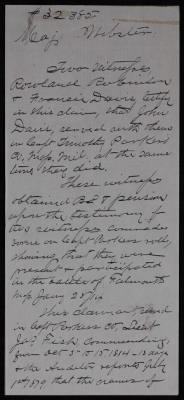 # 32385
Maj Webster
Two witnesses
Rowland Robinson
& Francis Davis, testify
in this claim, that John
Davis, served with them
in Capt Timothy Parkers
Co, Mass. Mil. at the same
time they did.
These witnesses
obtained & pension
upon the testimony of
two witnesses
some on Capt Parkers roll,
showing that they were
present & participated
in the battle of Falmouth
Mass Jany 28/14
This claimant served
in Capt Parkers Co
Jas Fish commanding,
from Oct 3 to 15 1814 - 13 days
& the Auditor reports July
1st 1879 that the names of